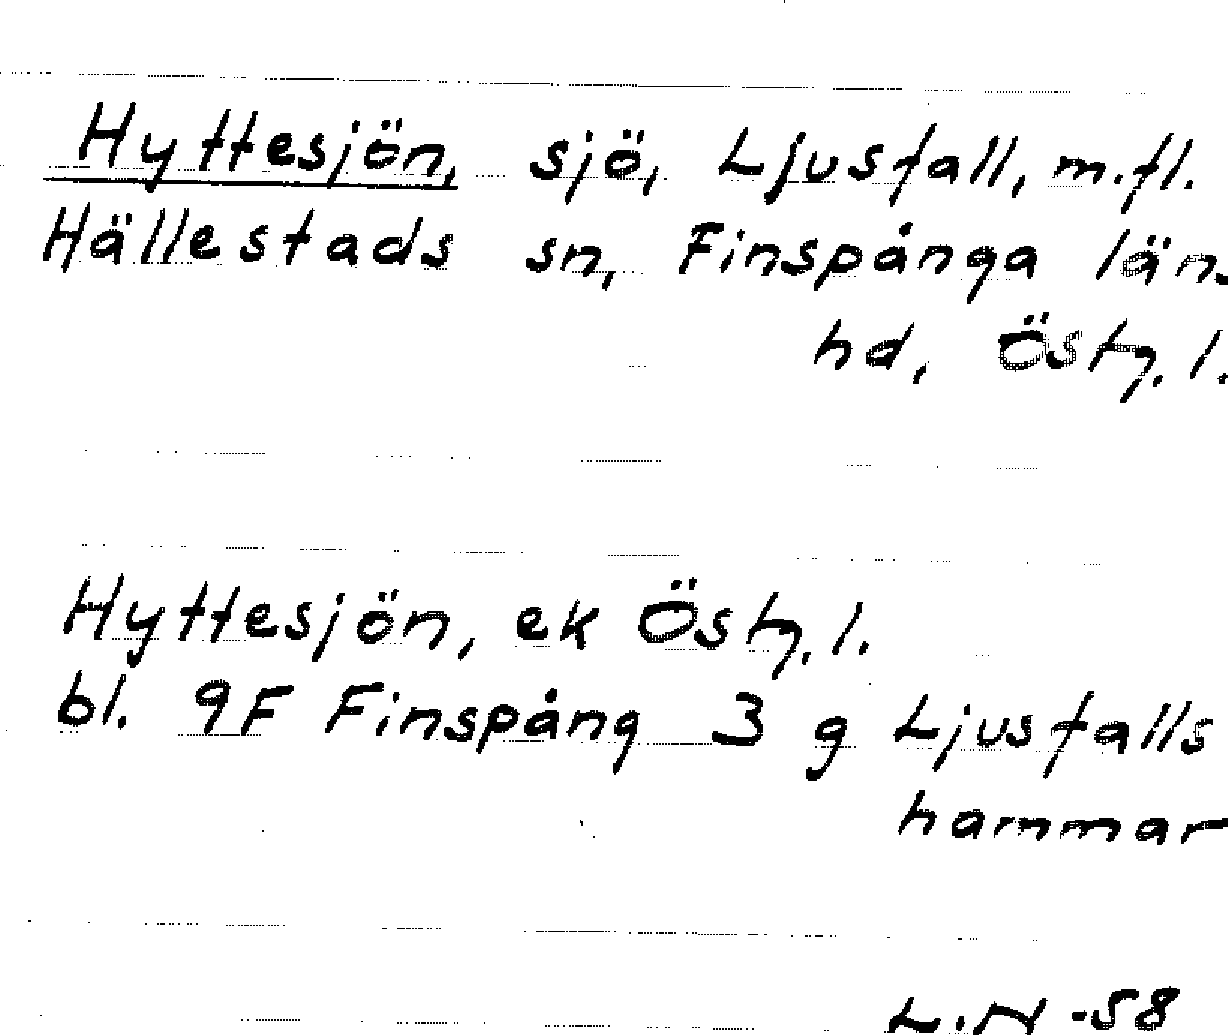 Hyttesjön, sjö, Ljusfall, m.fl.
Hällestads sn, Finspånga läns
hd, Östg. l.
Hyttesjön, ek Östg. l.
bl. 9F Finspång 3 g Ljusfalls
hammar
L.N -58